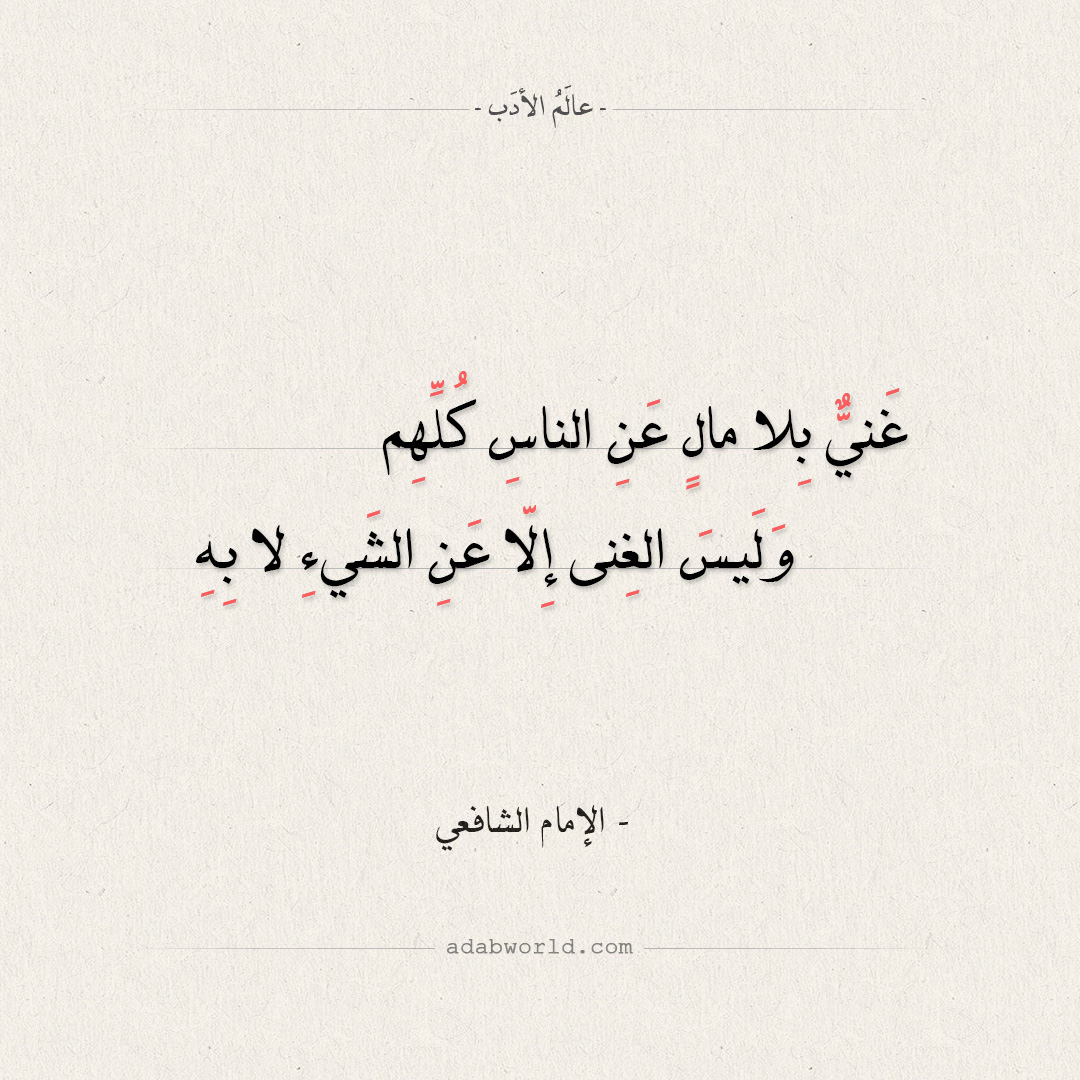 - عالَمُ الأدَب -
غَنيٌّ بِلا مالٍ عَنِ الناسِ كُلِّهِم
وَلَيسَ الغِنى إِلّا عَنِ الشَيءِ لا بِهِ
- الإمام الشافعي
adabworld.com